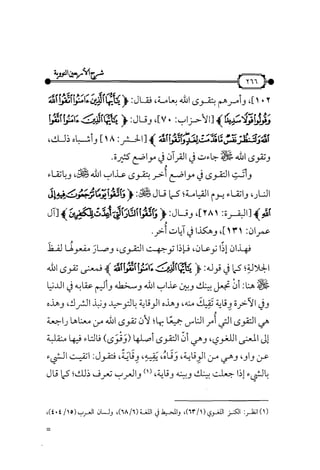 شرح الأربعين النووية
٢٦٦
١٠٢]، وأمرهم بتقوى الله بعامة، فقال: ﴿يَٰٓأَيُّهَا ٱلَّذِينَ ءَامَنُوا۟ ٱتَّقُوا۟ ٱللَّهَ
وَقُولُوا۟ قَوْلًا سَدِيدًا﴾ [الأحزاب: ٧٠]، وقال: ﴿يَٰٓأَيُّهَا ٱلَّذِينَ ءَامَنُوا۟ ٱتَّقُوا۟
ٱللَّهَ وَلْتَنظُرْ نَفْسٌ مَّا قَدَّمَتْ لِغَدٍ وَٱتَّقُوا۟ ٱللَّهَ﴾ [الحشر: ١٨] وأشباه ذلك،
وتقوى الله ﷻ جاءت في القرآن في مواضع كثيرة.
وأتتِ التقوى في مواضع أُخر بتقوى عذاب الله ﷻ، وباتقاء
النار، واتقاء يوم القيامة؛ كما قال ﷻ: ﴿وَٱتَّقُوا۟ يَوْمًا تُرْجَعُونَ فِيهِ إِلَى
ٱللَّهِ﴾ [البقرة: ٢٨١]، وقال: ﴿وَٱتَّقُوا۟ ٱلنَّارَ ٱلَّتِىٓ أُعِدَّتْ لِلْكَٰفِرِينَ﴾ [آل
عمران: ١٣١]، وهكذا في آيات أخر.
فهذان إذًا نوعان، فإذا توجهت التقوى، وصارَ مفعولُها لفظَ
الجلالةِ؛ كما في قوله: ﴿يَٰٓأَيُّهَا ٱلَّذِينَ ءَامَنُوا۟ ٱتَّقُوا۟ ٱللَّهَ﴾ فمعنى تقوى الله
ﷻ هنا: أنْ تجعل بينك وبين عذاب الله وسخطه وأليم عقابه في الدنيا
وفي الآخرة وقاية تَقِيكَ منه، وهذه الوقاية بالتوحيد ونبذ الشرك، وهذه
هي التقوى التي أُمر الناس جميعًا بها؛ لأن تقوى الله من معناها راجعة
إلى المعنى اللغوي، وهي أنّ التقوى أصلها (وَقْوَى) فالتاء فيها منقلبة
عن واو، وهي من الوقاية، وَقَاهُ، يَقِيهِ، وِقَايَةً، فتقول: اتقيت الشيء
بالشيء إذا جعلت بينك وبينه وقاية، (١) والعرب تعرف ذلك؛ كما قال
(١) انظر: الكنز اللغوي (١/٦٣)، والمحيط في اللغة (٦/٦٨)، ولسان العرب (١٥/٤٠٤)،
=